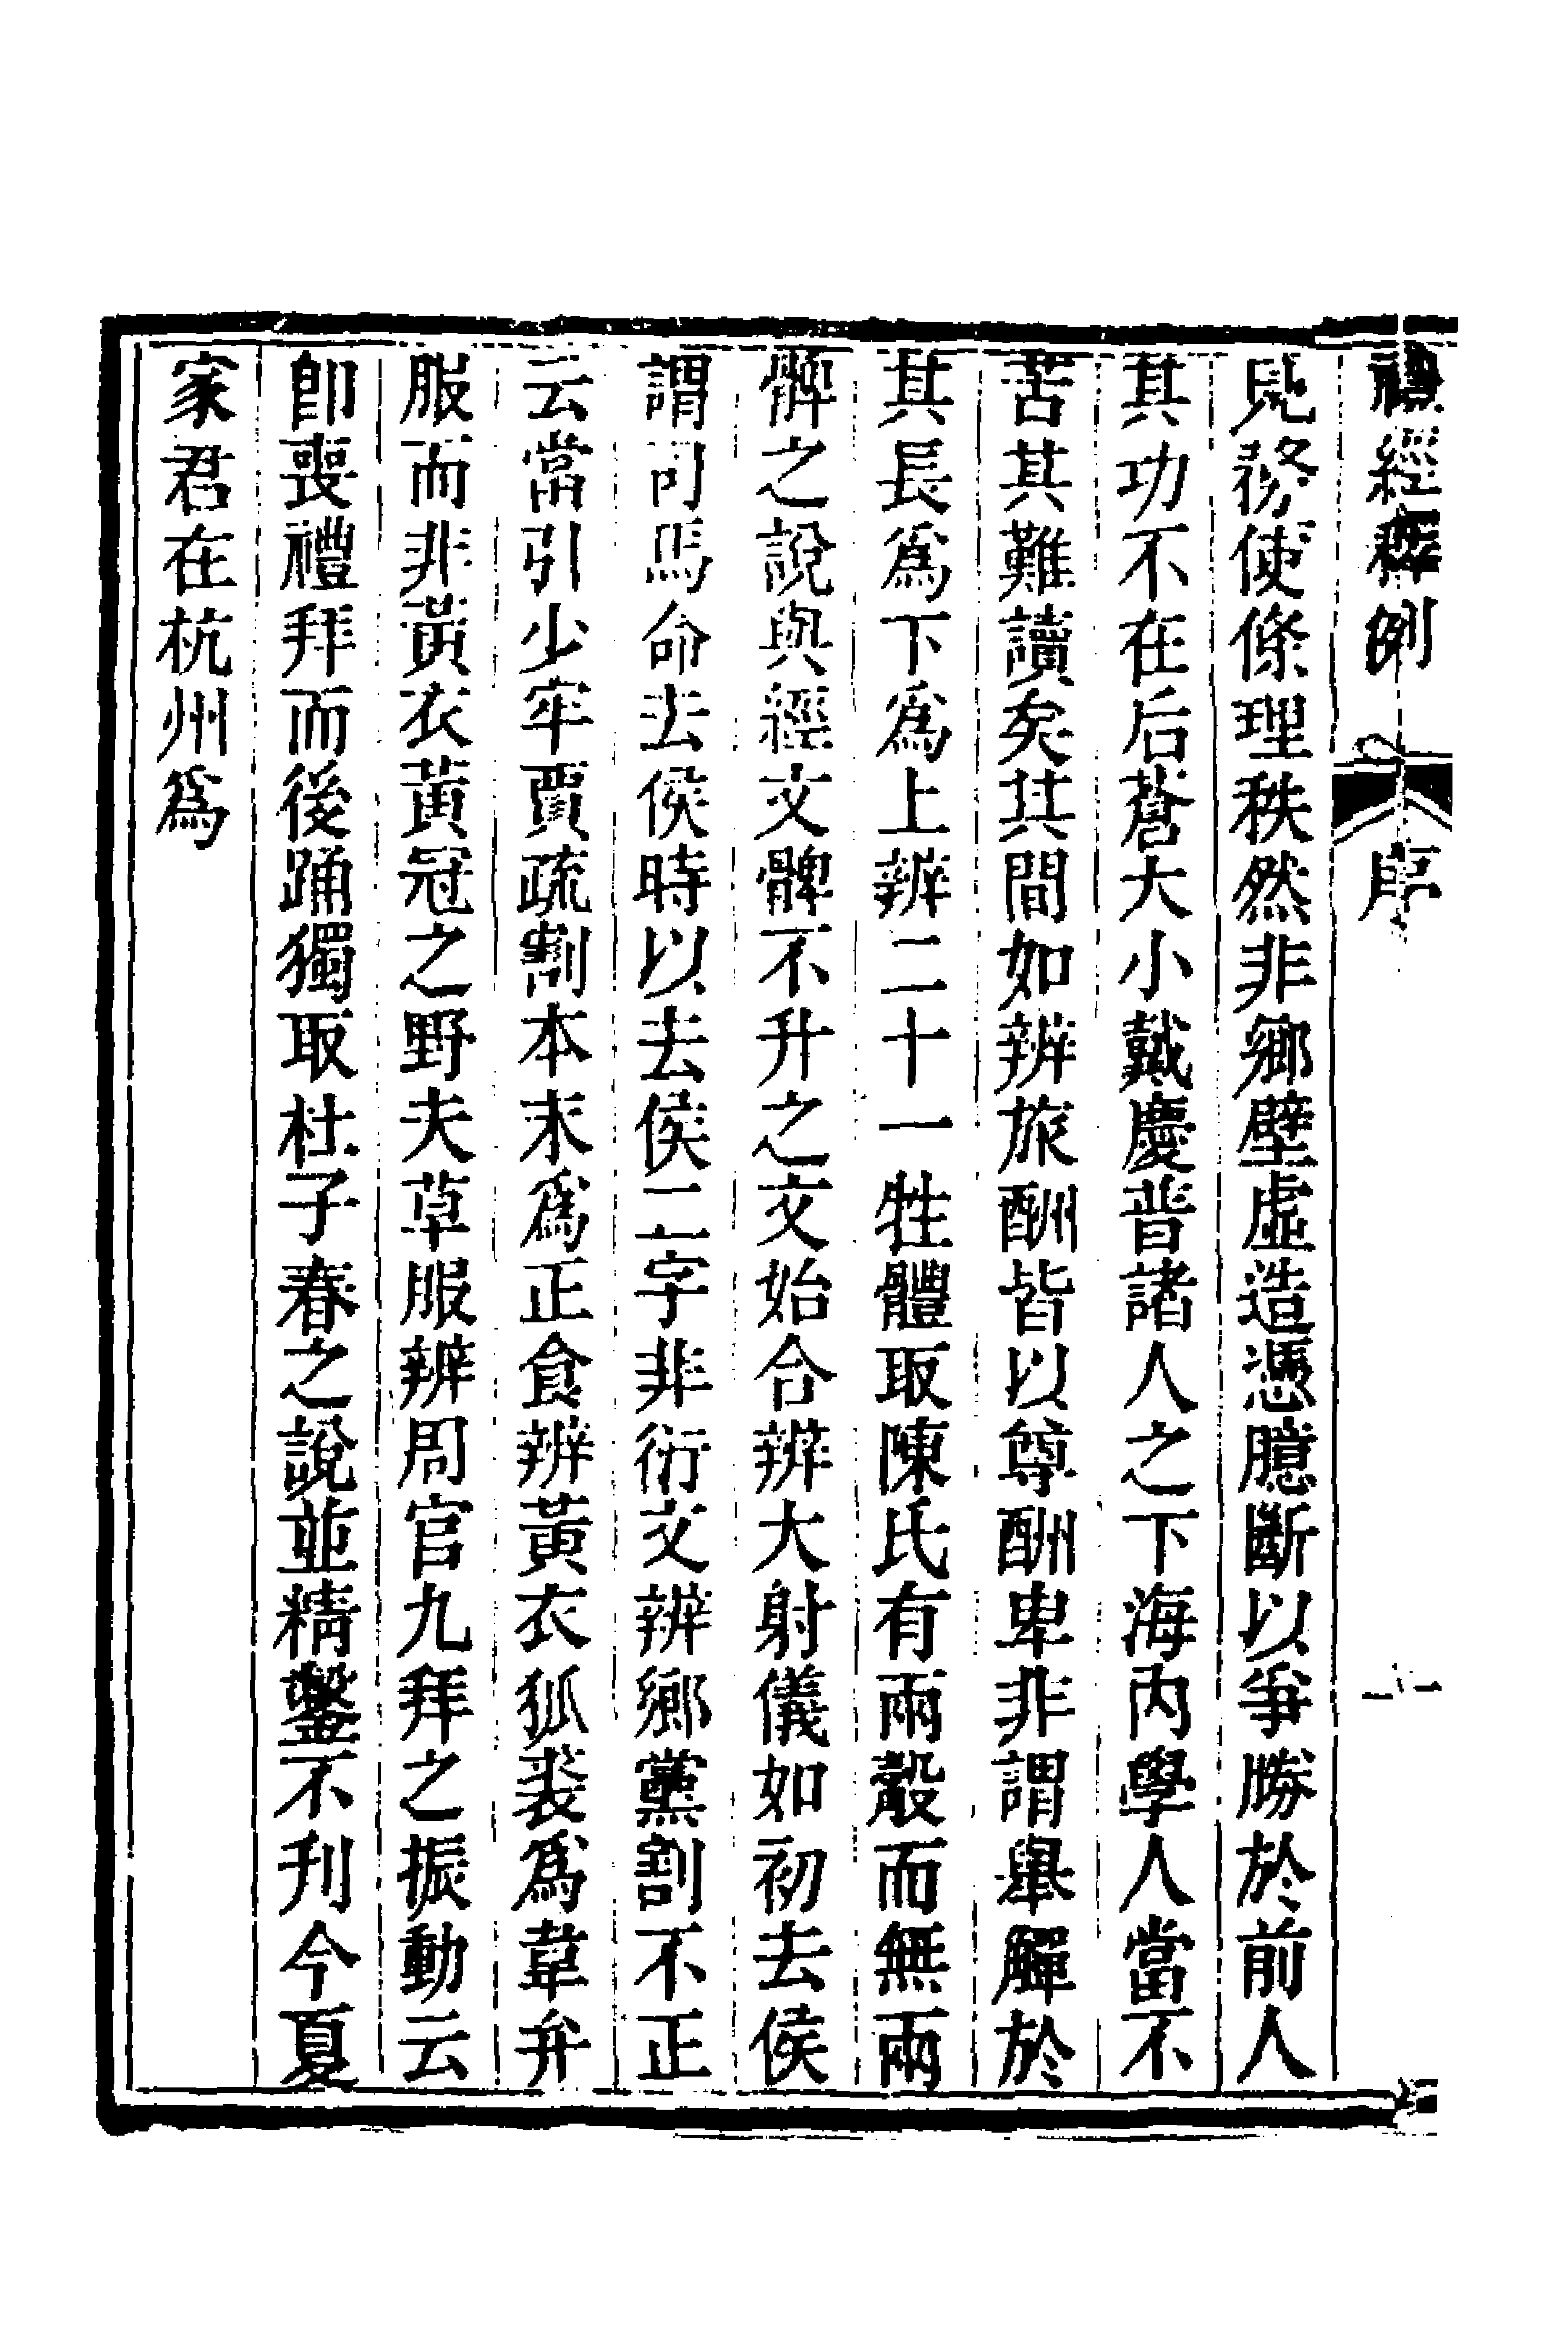 禮經釋例 序 一
見務使條理秩然非鄉壁虛造憑臆斷以爭勝於前人
其功不在后蒼大小戴慶普諸人之下海內學人當不
苦其難讀矣其間如辨旅酬皆以尊酬卑非謂舉觶於
其長爲下爲上辨二十一牲體取陳氏有兩㲉而無兩
髀之說與經文髀不升之文始合辨大射儀如初去侯
謂司馬命去侯時以去侯二字非衍文辨鄉黨割不正
云當引少牢賈疏割本末爲正食辨黃衣狐裘爲韋弁
服而非黃衣黃冠之野夫草服辨周官九拜之振動云
卽喪禮拜而後踊獨取杜子春之說並精鑿不刊今夏
家君在杭州爲